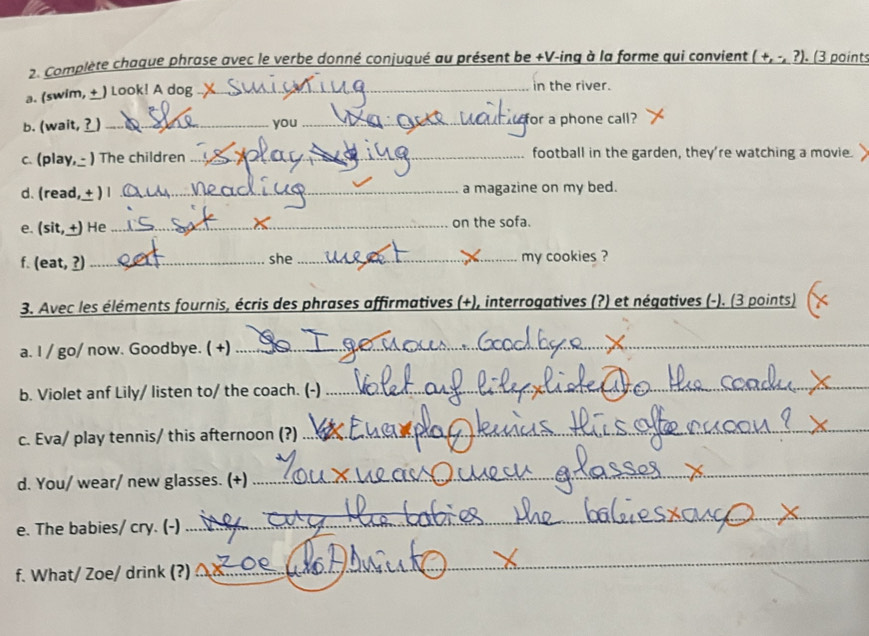 2. Complète chaque phrase avec le verbe donné conjugué au présent be +V-ing à la forme qui convient ( +, -, ?). (3 points
a. (swim, + ) Look! A dog swiming in the river.
b. (wait, ? ) She you We are waiting for a phone call?
c. (play, - ) The children is playing football in the garden, they're watching a movie.
d. (read, + ) I am reading a magazine on my bed.
e. (sit, +) He is sit on the sofa.
f. (eat, ?) eat she my cookies ?
3. Avec les éléments fournis, écris des phrases affirmatives (+), interrogatives (?) et négatives (-). (3 points)
a. I / go/ now. Goodbye. ( +) I go now. Goodbye
b. Violet anf Lily/ listen to/ the coach. (-) Violet anf Lily listen to the coach
c. Eva/ play tennis/ this afternoon (?) Eva play tennis this afternoon ?
d. You/ wear/ new glasses. (+) You wear new glasses
e. The babies/ cry. (-) the babies the babies cry
f. What/ Zoe/ drink (?) Zoe what Drink